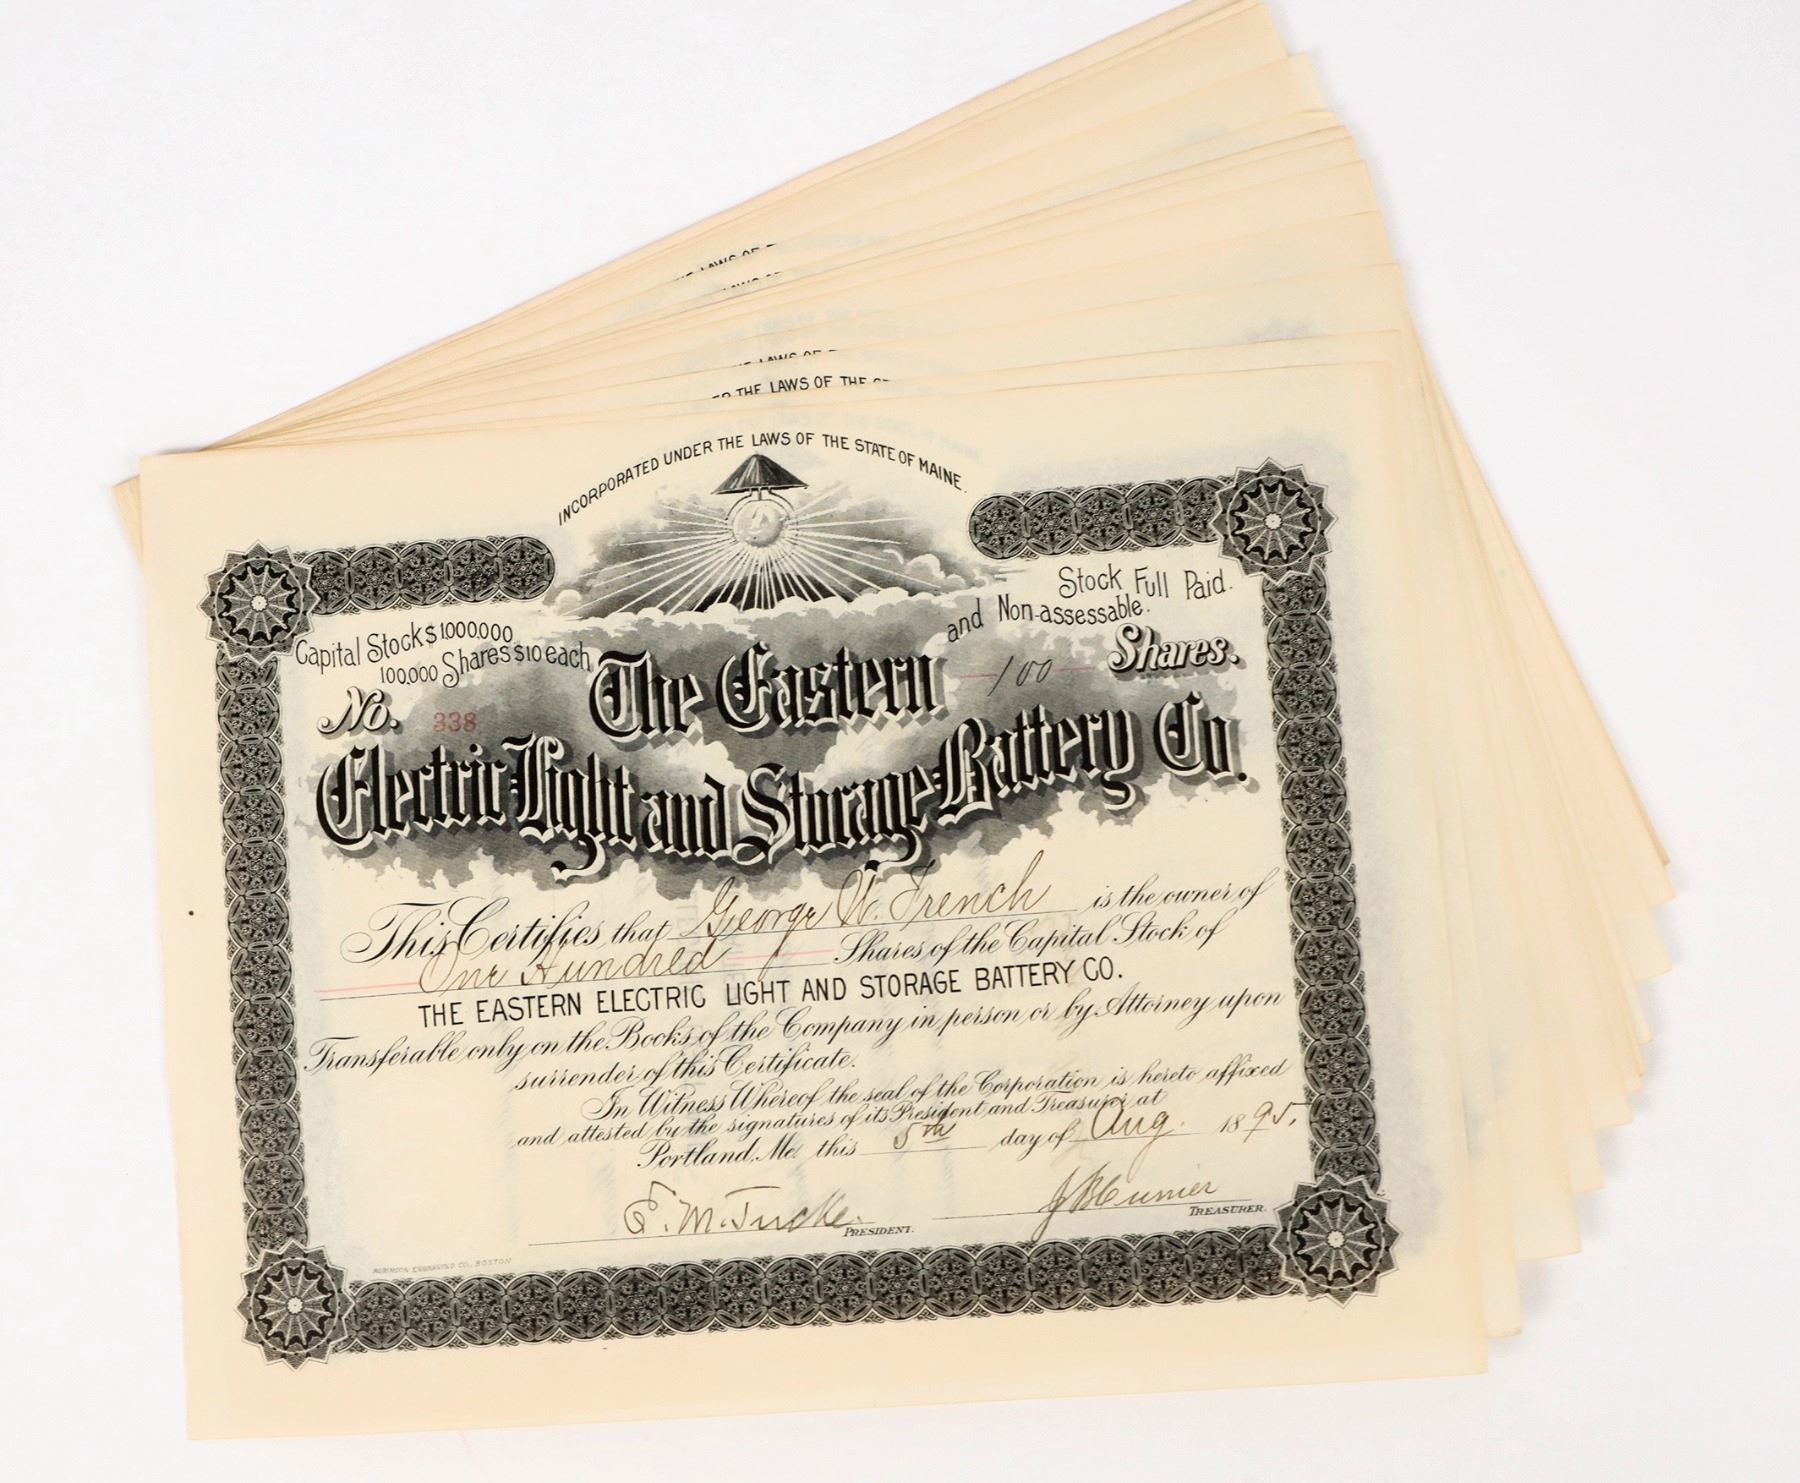 LAWS OF
LAWS OF
THE LAWS OF THE
INCORPORATED UNDER THE LAWS OF THE STATE OF MAINE.
Capital Stock $1,000,000
100,000 Shares $10 each
Stock Full Paid.
and Non-assessable.
No. 338
100 Shares.
The Eastern
Electric Light and Storage Battery Co.
This Certifies that George W. French is the owner of
One Hundred Shares of the Capital Stock of
THE EASTERN ELECTRIC LIGHT AND STORAGE BATTERY CO.
Transferable only on the Books of the Company in person or by Attorney upon
surrender of this Certificate.
In Witness Whereof the seal of the Corporation is hereto affixed
and attested by the signatures of its President and Treasurer at
Portland, Me. this 5th day of Aug. 1895.
PRESIDENT.
TREASURER.
ROBINSON ENGRAVING CO., BOSTON